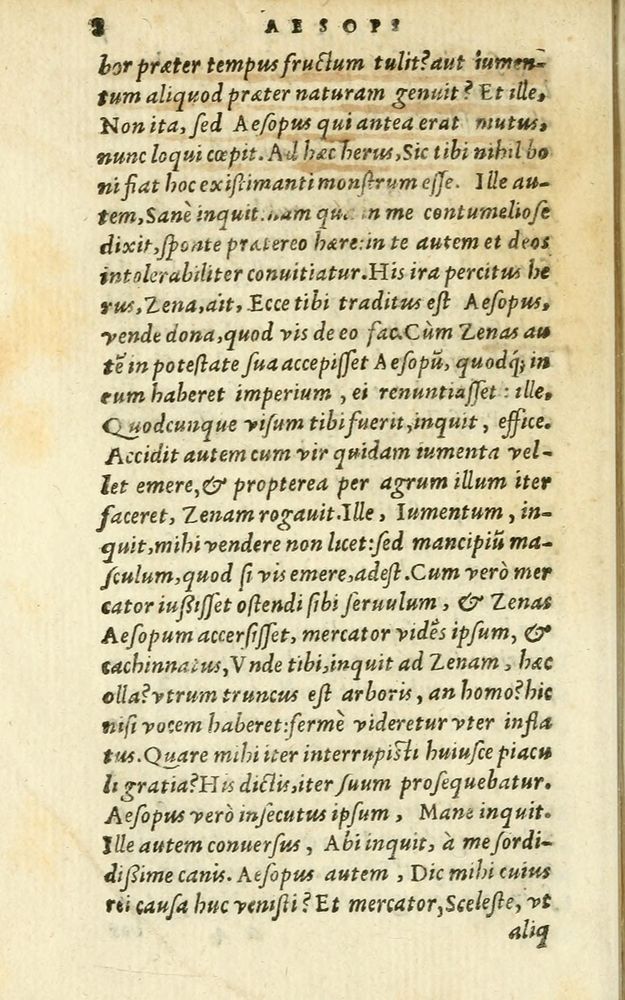 8 AESOPI
bor præter tempus fructum tulit? aut iumen-
tum aliquod præter naturam genuit? Et ille,
Non ita, ſed Aeſopus qui antea erat mutus,
nunc loqui cœpit. Ad hæc herus, Sic tibi nihil bo
ni fiat hoc exiſtimanti monſtrum eſſe. Ille au-
tem, Sanè inquit. nam quæ in me contumelioſe
dixit, ſponte prætereo hære: in te autem et deos
intolerabiliter conuitiatur. His ira percitus he
rus, Zena, ait, Ecce tibi traditus eſt Aeſopus,
vende dona, quod vis de eo fac. Cùm Zenas au
tē in poteſtate ſua accepiſſet Aeſopū, quodq́; in
eum haberet imperium, ei renuntiaſſet: ille,
Quodcunque viſum tibi fuerit, inquit, effice.
Accidit autem cum vir quidam iumenta vel-
let emere, & propterea per agrum illum iter
faceret, Zenam rogauit. Ille, Iumentum, in-
quit, mihi vendere non licet: ſed mancipiū ma-
ſculum, quod ſi vis emere, adeſt. Cum verò mer
cator iußiſſet oſtendi ſibi ſeruulum, & Zenas
Aeſopum accerſiſſet, mercator vidēs ipſum, &
cachinnatus, Vnde tibi, inquit ad Zenam, hæc
olla? vtrum truncus eſt arboris, an homo? hic
niſi vocem haberet: fermè videretur vter infla
tus. Quare mihi iter interrupiſti huiuſce piacu
li gratia? His dictis, iter ſuum proſequebatur.
Aeſopus verò inſecutus ipſum, Mane inquit.
Ille autem conuerſus, Abi inquit, à me ſordi-
dißime canis. Aeſopus autem, Dic mihi cuius
rei cauſa huc veniſti? Et mercator, Sceleſte, vt
aliq